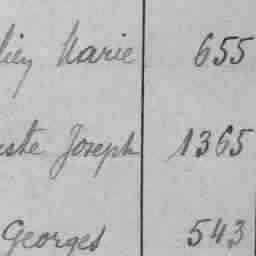 Marie 655
Joseph 1365
Georges 543